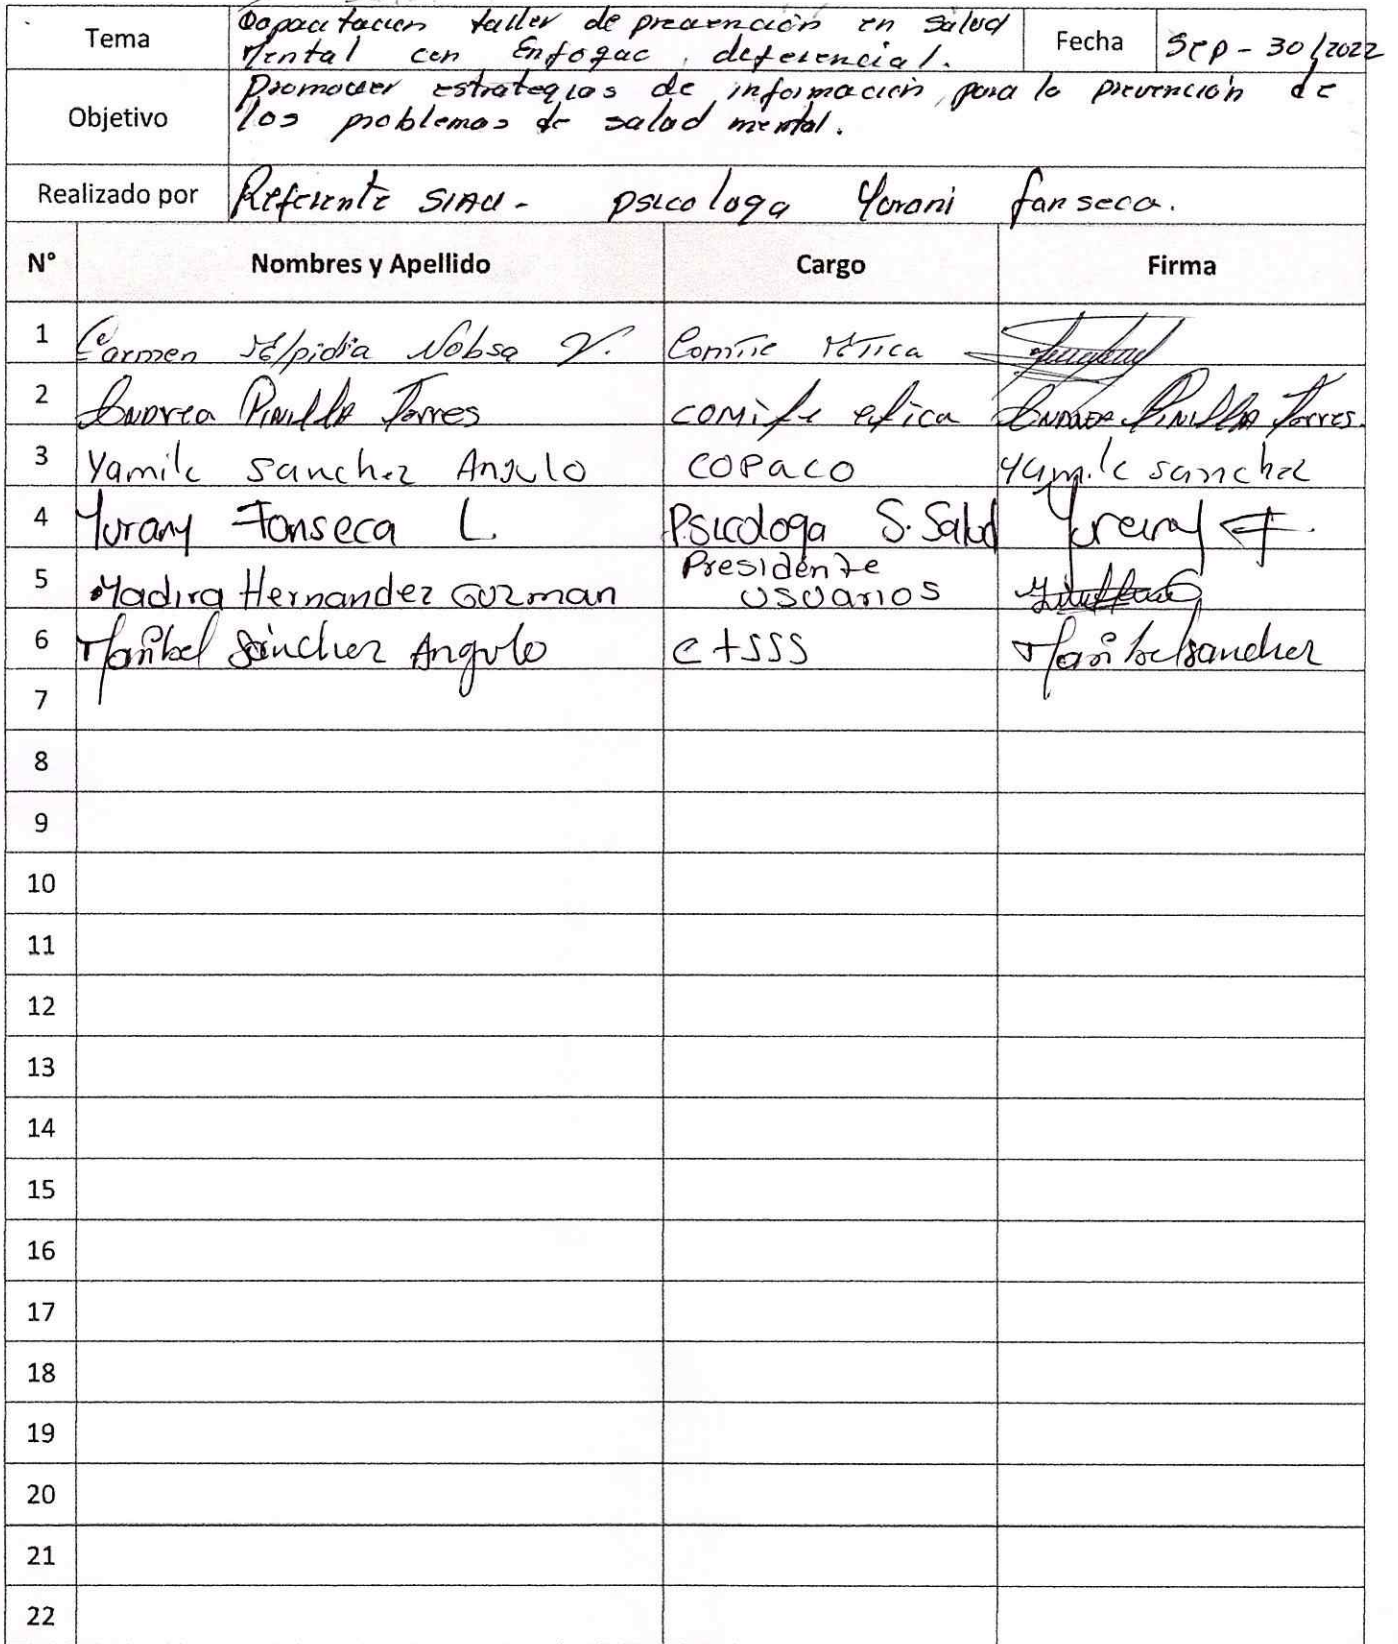 Tema
Capacitacion taller de prevención en salud
Mental con Enfoque diferencial.
Fecha
Sep - 30/2022
Objetivo
Promover estrategias de información, para la prevención de
los problemas de salud mental.
Realizado por
Referente SIAU - psicologa Yurani fonseca.
N° Nombres y Apellido Cargo Firma
1 Carmen Elpidia Nobsa V. Comite Etica
2 Andrea Pinilla Torres comite etica Andrea Pinilla Torres.
3 Yamile Sanchez Angulo COPACO Yamile sanchez
4 Yurany Fonseca L Psicologa S. Salud Yurany F.
5 Yadira Hernandez Guzman Presidente
usuarios
6 Maribel Sánchez Angulo CTSSS Maribel sanchez
7
8
9
10
11
12
13
14
15
16
17
18
19
20
21
22